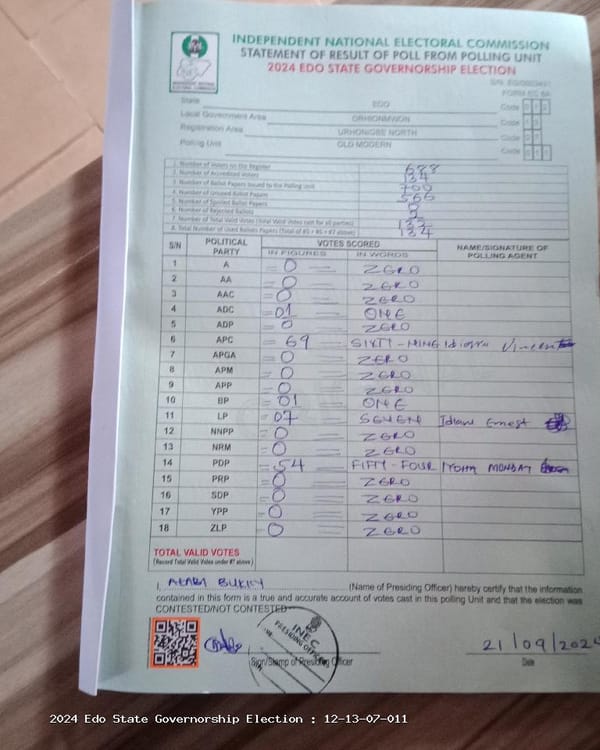 INDEPENDENT NATIONAL ELECTORAL COMMISSION
STATEMENT OF RESULT OF POLL FROM POLLING UNIT
2024 EDO STATE GOVERNORSHIP ELECTION
FORM EC 8A
State EDO Code
Local Government Area ORHIONMWON Code
Registration Area URHONIGBE NORTH Code
Polling Unit OLD MODERN Code
1. Number of Voters on the Register 688
2. Number of Accredited Voters 134
3. Number of Ballot Papers Issued to the Polling Unit 700
4. Number of Unused Ballot Papers 566
5. Number of Spoiled Ballot Papers
6. Number of Rejected Ballots
7. Number of Total Valid Votes (Total Valid Votes cast for all parties)
8. Total Number of Used Ballots Papers (Total of #5 + #6 + #7 above) 134
S/N POLITICAL PARTY VOTES SCORED NAME/SIGNATURE OF POLLING AGENT
IN FIGURES IN WORDS
1 A 0 ZERO
2 AA 0 ZERO
3 AAC 0 ZERO
4 ADC 01 ONE
5 ADP 0 ZERO
6 APC 69 SIXTY-NINE Vincent
7 APGA 0 ZERO
8 APM 0 ZERO
9 APP 0 ZERO
10 BP 01 ONE
11 LP 07 SEVEN Ernest
12 NNPP 0 ZERO
13 NRM 0 ZERO
14 PDP 54 FIFTY-FOUR MONDAY
15 PRP 0 ZERO
16 SDP 0 ZERO
17 YPP 0 ZERO
18 ZLP 0 ZERO
TOTAL VALID VOTES
(Record Total Valid Votes under #7 above)
I, (Name of Presiding Officer) hereby certify that the information
contained in this form is a true and accurate account of votes cast in this polling Unit and that the election was
CONTESTED/NOT CONTESTED
INEC
PRESIDING OFFICER
21/09/2024
Sign/Stamp of Presiding Officer Date
2024 Edo State Governorship Election : 12-13-07-011